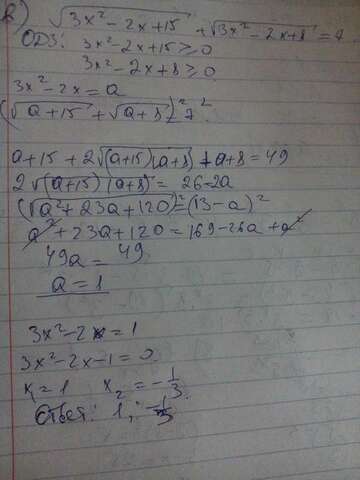 в) √(3x²-2x+15) + √(3x²-2x+8) = 7
ОДЗ: 3x²-2x+15≥0
3x²-2x+8≥0
3x²-2x=a
(√(a+15) + √(a+8))²=7²
a+15+2√((a+15)(a+8))+a+8=49
2√((a+15)(a+8)) = 26-2a
(√(a²+23a+120))²=(13-a)²
a²+23a+120=169-26a+a²
49a=49
a=1
3x²-2x=1
3x²-2x-1=0
x₁=1 x₂=-1/3
Ответ: 1; -1/3